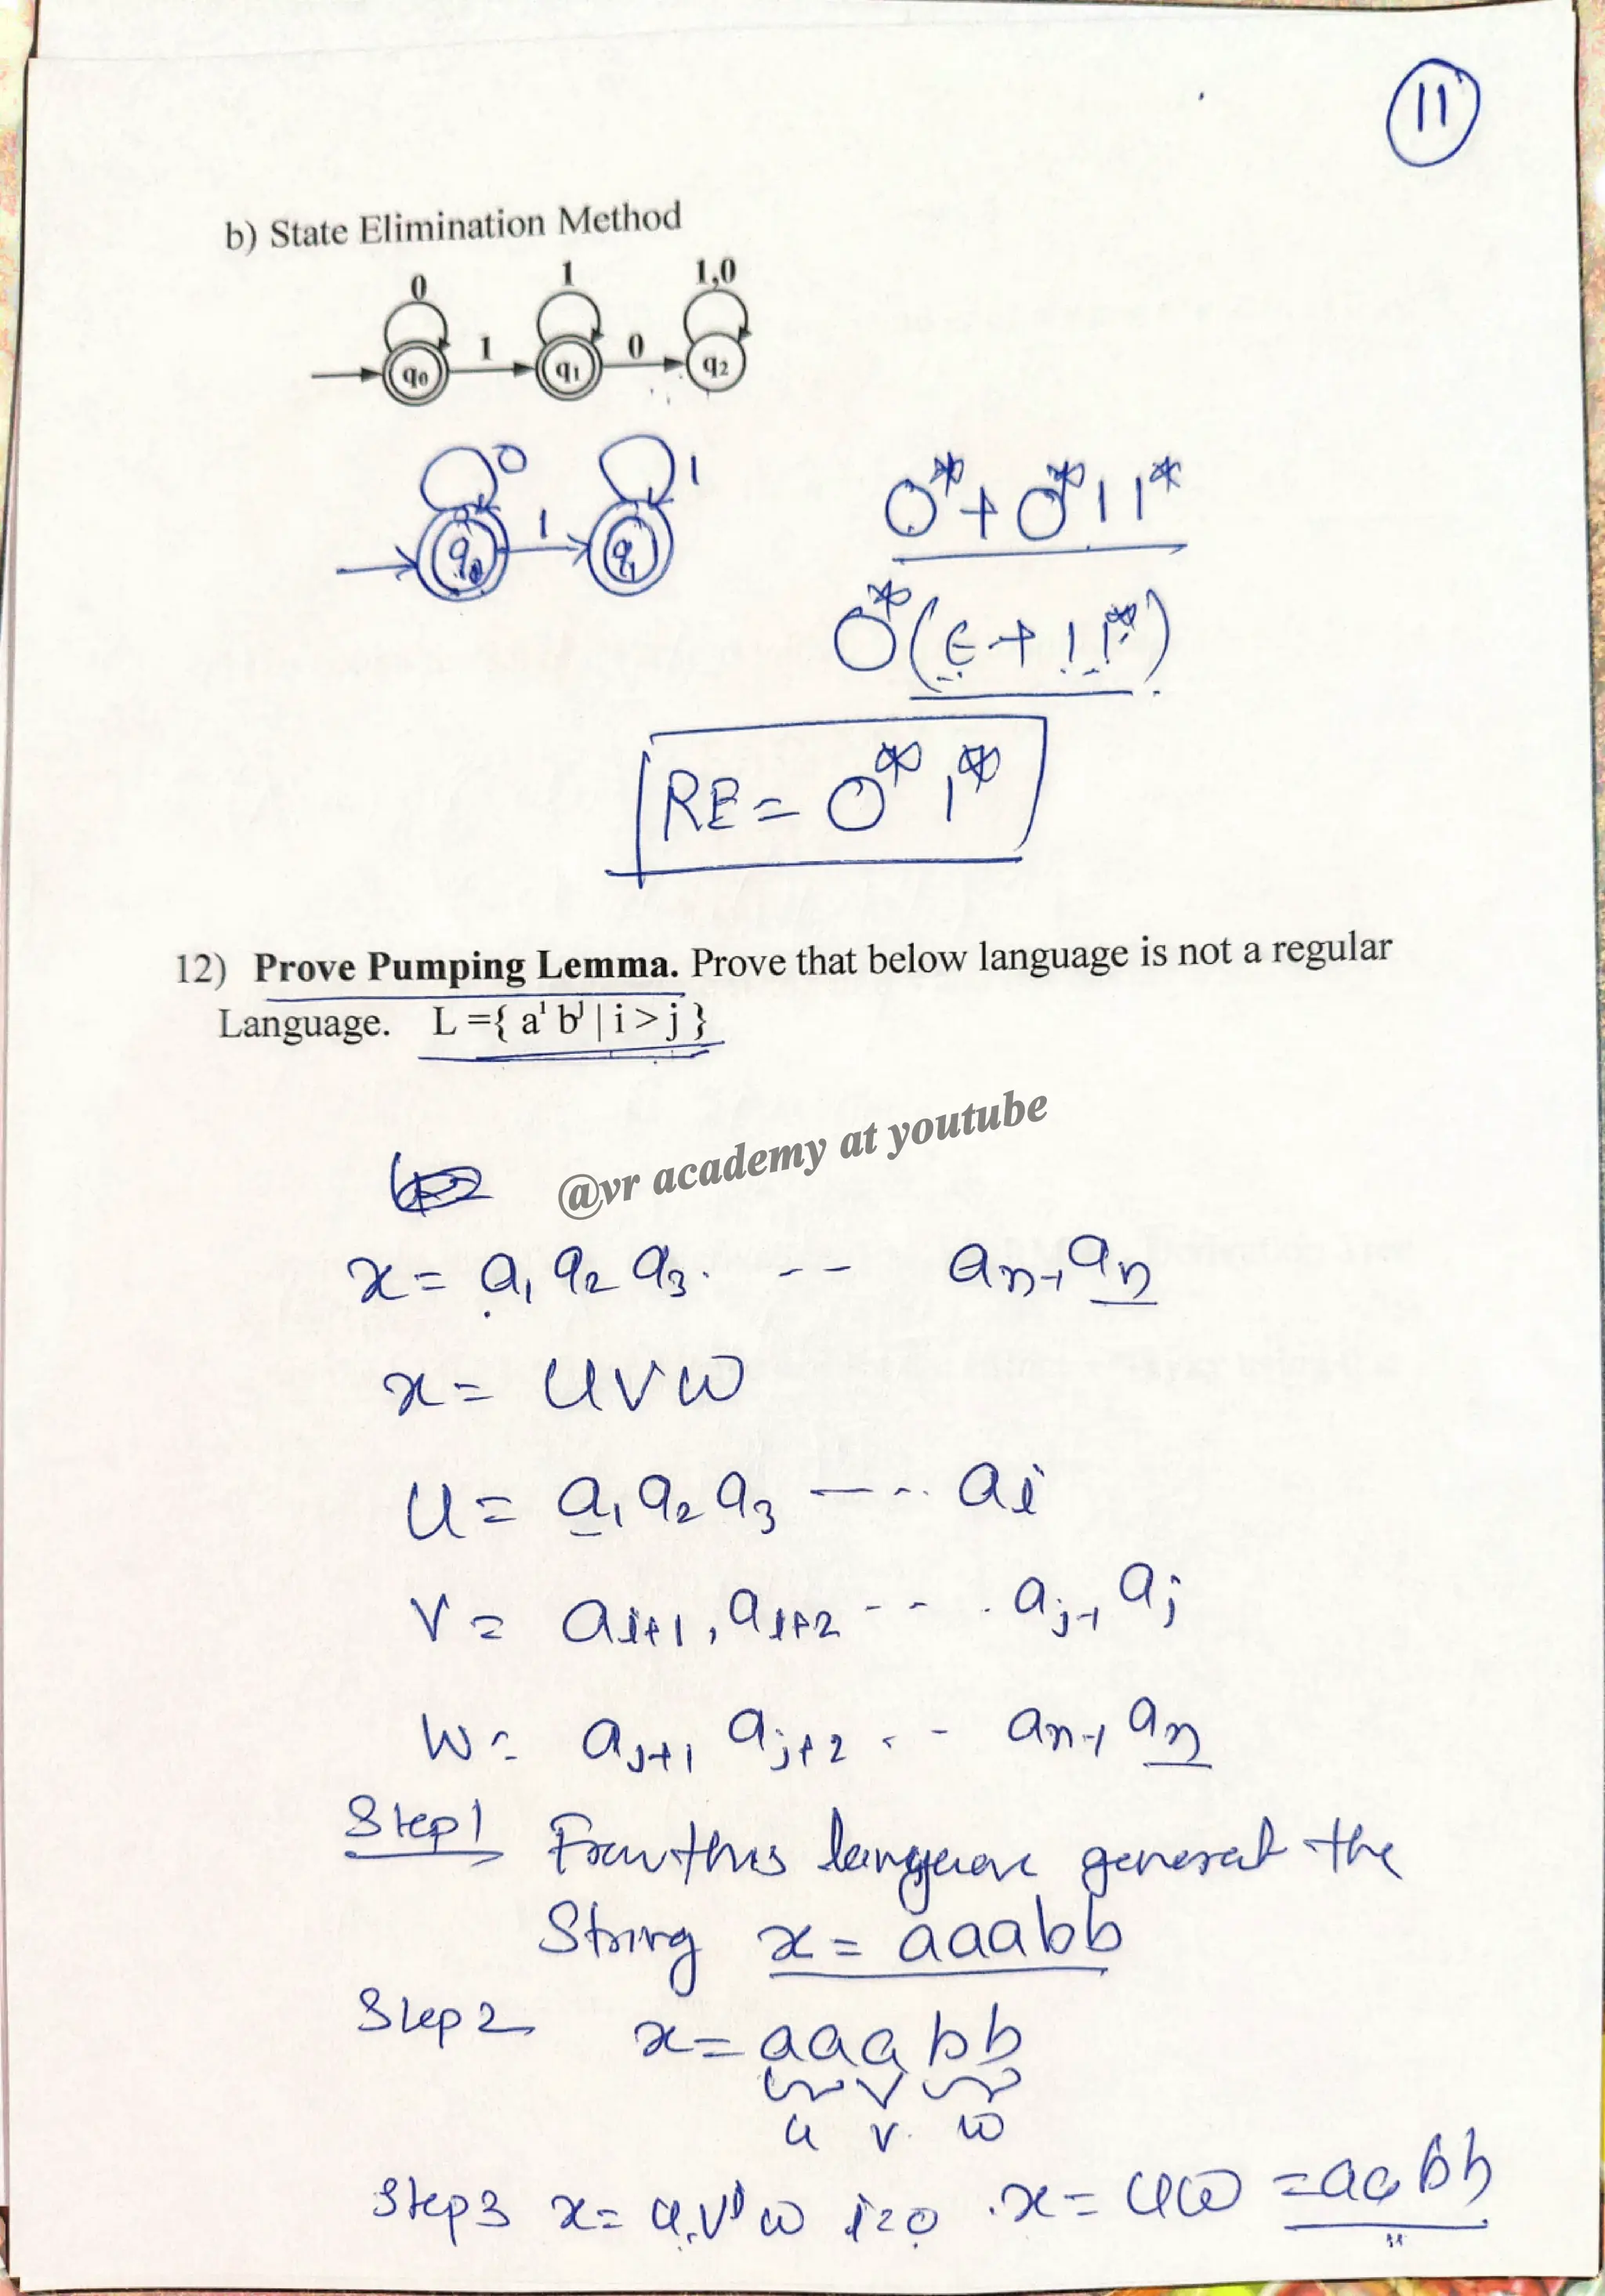 11
b) State Elimination Method
0 1 1,0
q0 1 q1 0 q2
0 1
q0 1 q1
0* + 0*11*
0*(ε+11*)
RE = 0*1*
12) Prove Pumping Lemma. Prove that below language is not a regular
Language. L ={ aⁱ bʲ | i > j }
@vr academy at youtube
x = a₁ a₂ a₃. -- aₙ₋₁ aₙ
x = uvw
u = a₁ a₂ a₃ --.. aᵢ
v = aᵢ₊₁, aᵢ₊₂ -- . aⱼ₋₁ aⱼ
w = aⱼ₊₁ aⱼ₊₂ . - aₙ₋₁ aₙ
Step1 From this language general the
String x = aaabb
Step 2 x = aaabb
u v w
Step3 x = u.vⁱw i=0 . x = uw = aabb